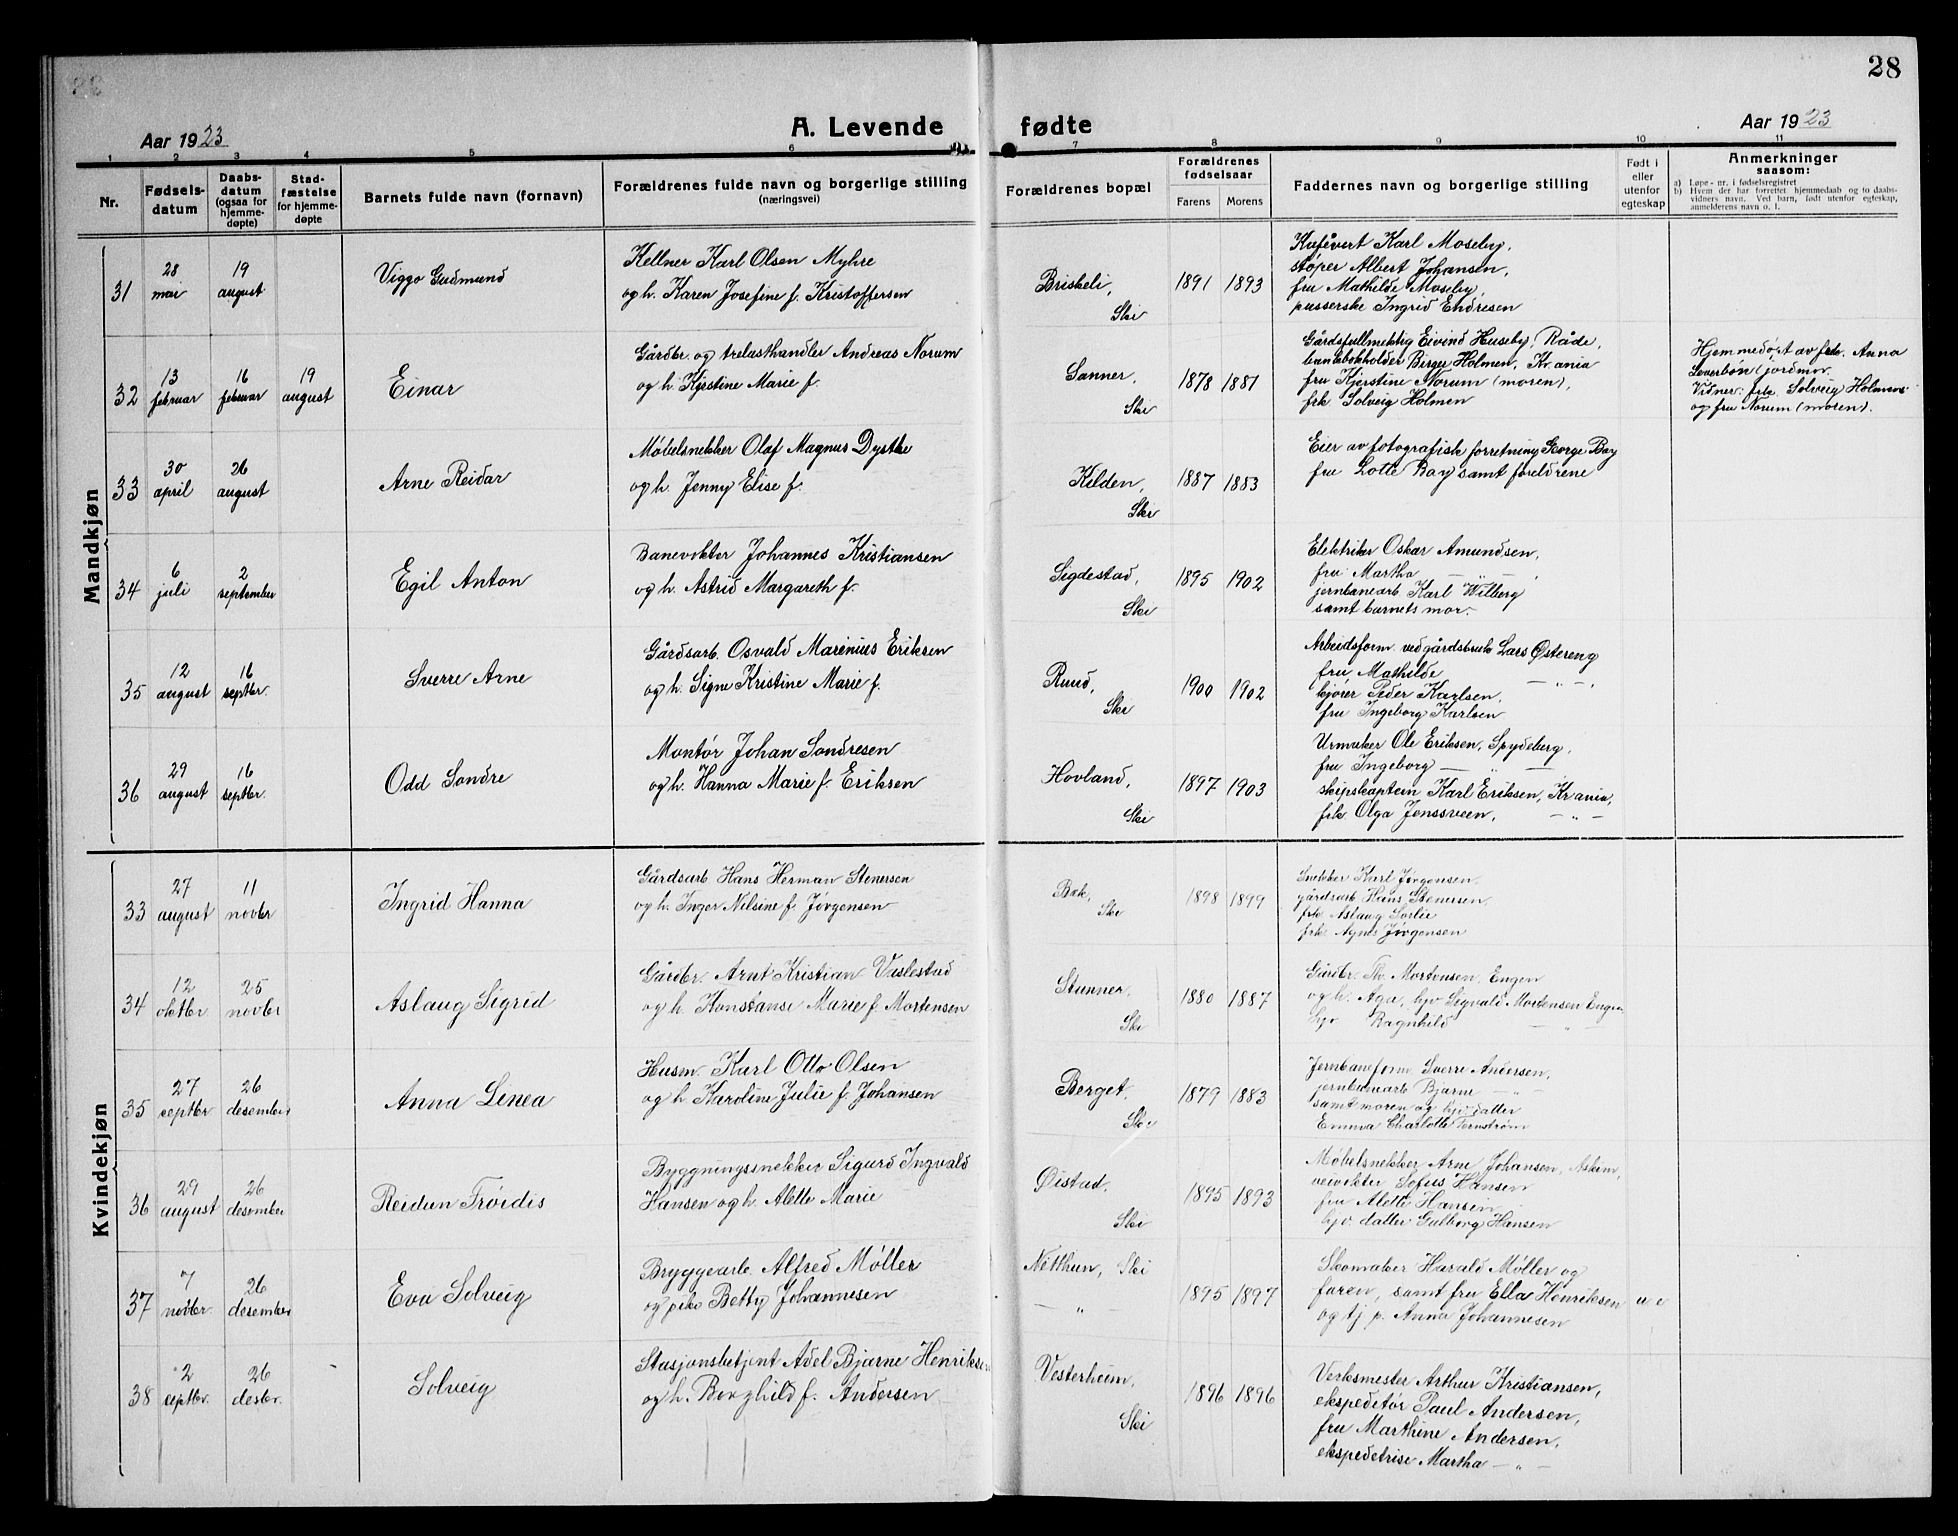 28
Aar 1923
A. Levende
fødte
Aar 1923
1 2 3 4 5 6 7 8 9 10 11
Nr.
Fødsels-
datum
Daabs-
datum
(ogsaa for
hjemme-
døpte)
Stad-
fæstelse
for hjemme-
døpte
Barnets fulde navn (fornavn)
Forældrenes fulde navn og borgerlige stilling
(næringsvei)
Forældrenes bopæl
Forældrenes
fødselsaar
Farens Morens
Faddernes navn og borgerlige stilling
Født i
eller
utenfor
egteskap
Anmerkninger
saasom:
a) Løpe-nr. i fødselsregistret
b) Hvem der har forrettet hjemmedaab og to daabs-
vidners navn. Ved barn, født utenfor egteskap,
anmelderens navn o. l.
Mandkjøn
31
28
mai
19
august
Viggo Gudmund
Kellner Karl Olsen Myhre
og h. Karen Josefine f. Kristoffersen
Briskeli,
Ski
1891 1893
Kafévert Karl Moseby,
støper Albert Johansen,
fru Mathilde Moseby,
pusserske Ingrid Endresen
32
13
februar
16
februar
19
august
Einar
Gårdbr. og trelasthandler Andreas Norum
og h. Kjerstine Marie f.
Sanner,
Ski
1878 1881
Gårdsfullmektig Eivind Huseby, Råde,
bankbokholder Birger Holmen, Kr.ania
fru Kjerstine Norum (moren),
frk Solveig Holmen
Hjemmedøpt av frk. Anna
Leverbön (jordmor.
Vidner: frk. Solveig Holmen
og fru Norum (moren).
33
30
april
26
august
Arne Reidar
Møbelsnekker Olaf Magnus Dystke
og h. Jenny Elise f.
Kilden,
Ski
1887 1883
Eier av fotografisk forretning George Bay
fru Lotte Bay samt foreldrene
34
6
juli
2
september
Egil Anton
Banevokter Johannes Kristiansen
og h. Astrid Margareth f.
Sigdestad,
Ski
1895 1902
Elektriker Oskar Amundsen,
fru Martha — " —,
jernbanearb Karl Wilberg
samt barnets mor.
35
12
august
16
septbr.
Sverre Arne
Gårdsarb. Osvald Marenius Eriksen
og h. Signe Kristine Marie f.
Ruud,
Ski
1900 1902
Arbeidsform. ved gårdsbruk Lars Østereng
fru Mathilde — " —,
kjører Peder Karlsen,
fru Ingeborg Karlsen
36
29
august
16
septbr.
Odd Sondre
Montør Johan Sondresen
og h. Hanna Marie f. Eriksen
Hovland,
Ski
1897 1903
Urmaker Ole Eriksen, Spydeberg,
fru Ingeborg — " —
skipskaptein Karl Eriksen, Kr ania,
frk. Olga Jenssveen, — " —
Kvindekjøn
33
27
august
11
novbr
Ingrid Hanna
Gårdsarb Hans Herman Stenersen
og h. Inger Nilsine f. Jørgensen
Bak,
Ski
1898 1899
Snekker Karl Jørgensen,
gårdsarb Hans Stenersen,
frk Aslaug Sørlie
frk. Agnes Jørgensen
34
12
oktbr.
25
novbr
Aslaug Sigrid
Gårdbr. Arnt Kristian Vaslestad
og h. Konstanse Marie f. Mortensen
Stunner.
Ski
1880 1887
Gårdbr. Th. Mortensen, Engen
og h. Aga, hjv Sigvald Mortensen Engen
hjv Ragnhild — " —
35
27
septbr
26
desember
Anna Linea
Husm. Karl Otto Olsen
og h Karoline Julie f Johansen
Berget,
Ski
1879 1883
Jernbaneform Sverre Andersen,
jernbanearb Bjarne — " —
samt moren og hjv. datter
Emma Charlotte Ternstrøm
36
29
august
26
desember
Reidun Frøidis
Byggningssnekker Sigurd Ingvald
Hansen og h. Alette Marie
Øistad,
Ski
1895 1893
Møbelsnekker Arne Johansen, Askim,
veivokter Sofus Hansen
fru Alette Hansen
hjv. datter Gulborg Hansen
37
7
novbr.
26
desember
Eva Solveig
Bryggearb. Alfred Møller
og pike Betty Johannesen
Nitthun, Ski
— " —
1895 1897
Skomaker Harald Møller og
faren, samt fru Ella Henriksen
og tj p. Anna Johannesen
u e
38
2
septbr.
26
desbr.
Solveig
Stasjonsbetjent Adel Bjarne Henriksen
og h. Borghild f. Andersen
Vesterheim,
Ski
1896 1896
Verksmester Arthur Kristiansen,
ekspeditør Paul Andersen,
fru Marthine Andersen,
ekspeditrise Martha — " —